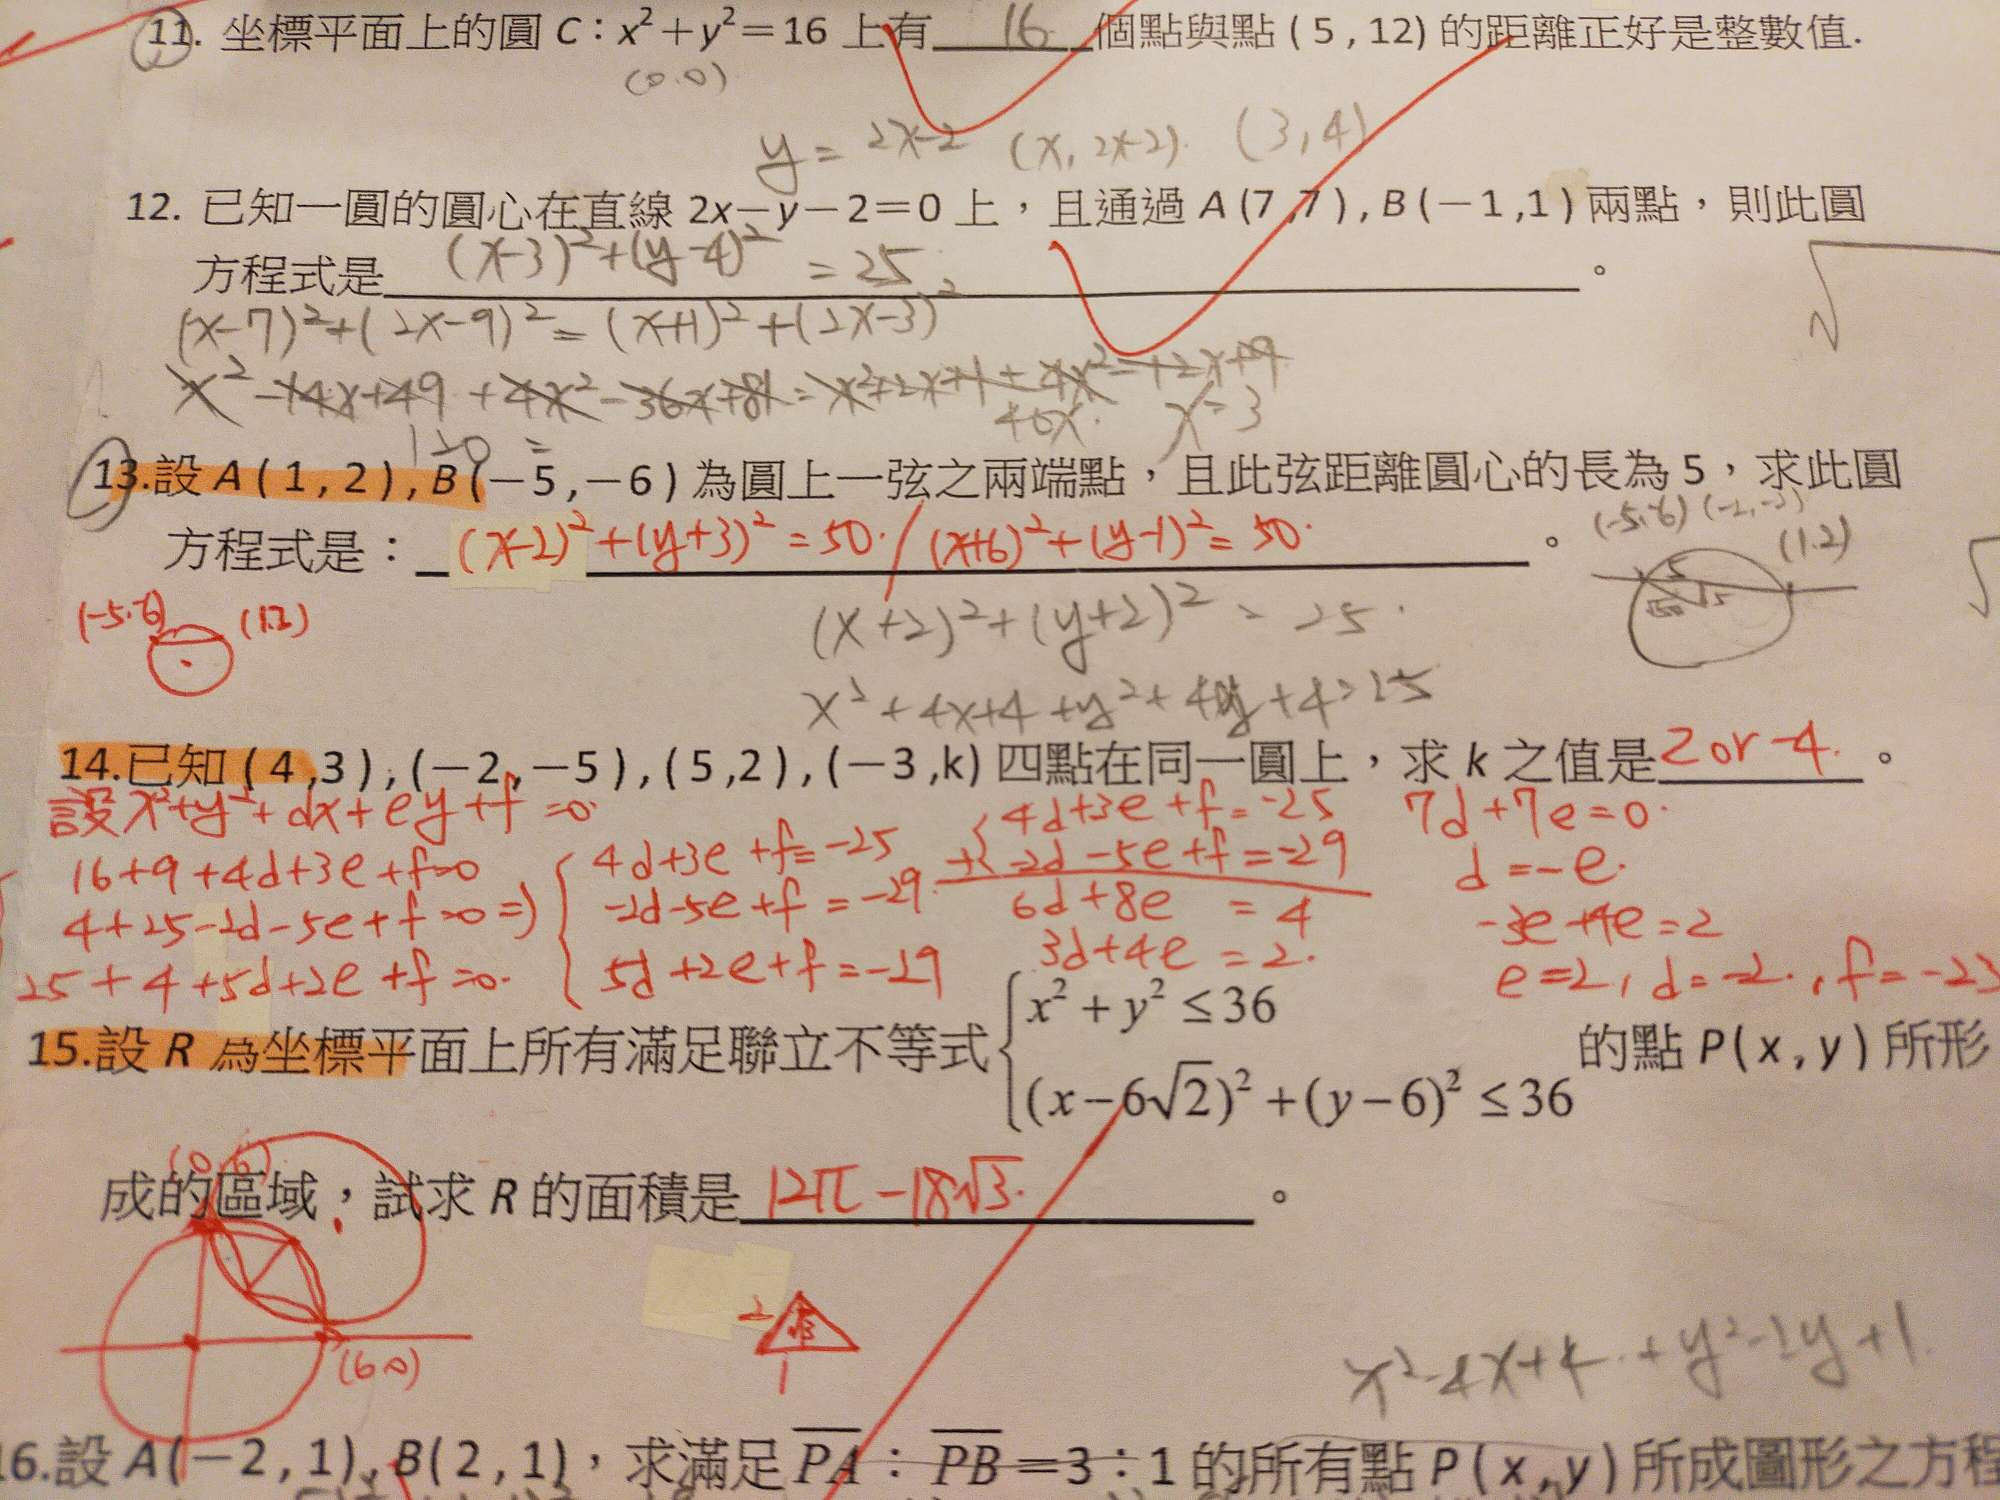 11. 坐標平面上的圓 C：x²+y²=16 上有 16 個點與點 ( 5 , 12) 的距離正好是整數值.
(0.0)
y = 2x-2 (x, 2x-2). (3,4)
12. 已知一圓的圓心在直線 2x－y－2＝0 上，且通過 A (7 ,7 ) , B (－1 ,1 ) 兩點，則此圓
方程式是 (x-3)²+(y-4)² = 25 。
(x-7)²+(2x-9)² = (x+1)²+(2x-3)²
x²-14x+49 +4x²-36x+81 = x²+2x+1+4x²-12x+9
120 = 40x. x=3
13.設 A ( 1 , 2 ) , B (－5 ,－6 ) 為圓上一弦之兩端點，且此弦距離圓心的長為 5，求此圓
(-5.-6) (-2,-2) (1.2)
方程式是： (x-2)²+(y+3)²=50. / (x+6)²+(y-1)²=50. 。
5
(-5.-6) (1.2)
(x+2)²+(y+2)² = 25.
x²+4x+4+y²+4y+4=25
14.已知 ( 4 ,3 ) , (－2 ,－5 ) , ( 5 ,2 ) , (－3 ,k) 四點在同一圓上，求 k 之值是 2 or -4. 。
設x²+y²+dx+ey+f=0.
16+9+4d+3e+f=0
4+25-2d-5e+f=0 =>
25+4+5d+2e+f=0.
4d+3e+f=-25
-2d-5e+f=-29
5d+2e+f=-29
4d+3e+f=-25
-2d-5e+f=-29
6d+8e = 4
3d+4e = 2.
7d+7e=0.
d=-e.
-3e+4e=2
e=2, d=-2., f=-23
15.設 R 為坐標平面上所有滿足聯立不等式 x²+y² ≤36 的點 P ( x , y ) 所形
(x－6√2)²+(y－6)² ≤36
成的區域，試求 R 的面積是 12π-18√3. 。
(0,6)
(6.0)
2 √3
1
x²-4x+4.+y²-2y+1
16.設 A(－2 , 1) , B( 2 , 1)，求滿足 PA：PB＝3：1 的所有點 P ( x , y ) 所成圖形之方程